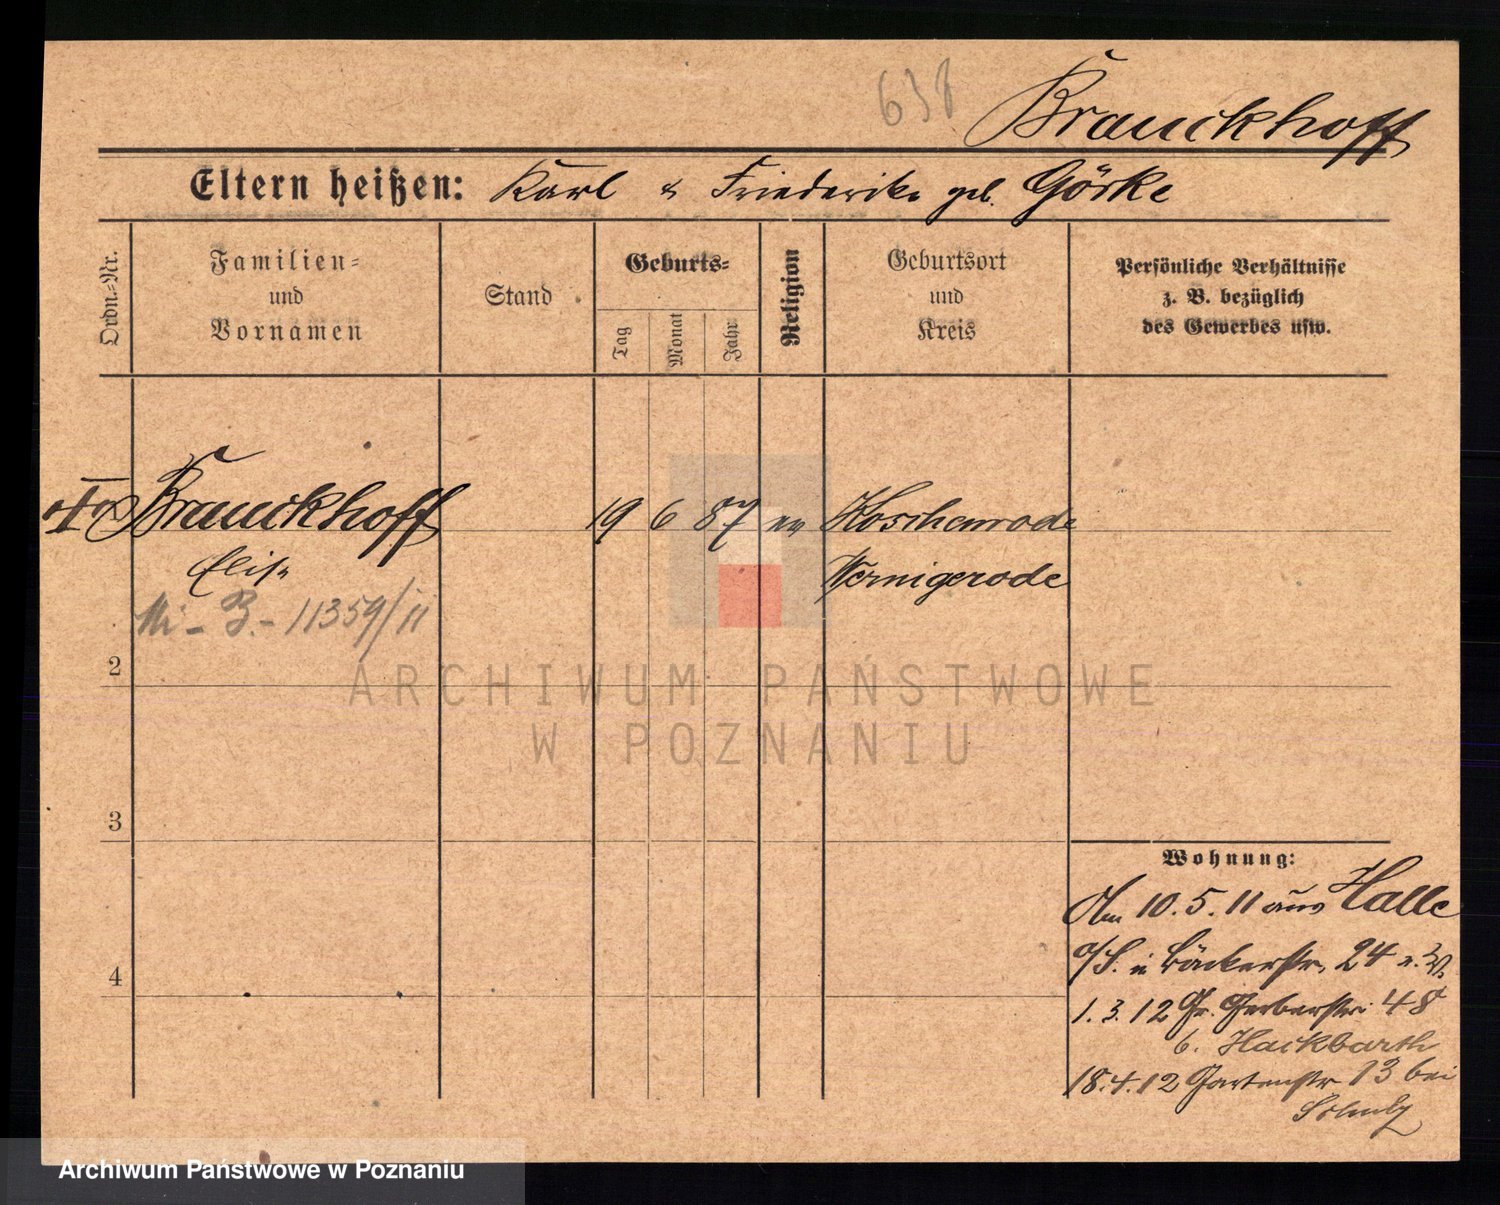 638
Brauckhoff
Eltern heißen: Karl & Friederike geb. Görke
Ordn.-Nr.
Familien-
und
Vornamen
Stand
Geburts-
Tag
Monat
Jahr
Religion
Geburtsort
und
Kreis
Persönliche Verhältnisse
z. B. bezüglich
des Gewerbes usw.
Brauckhoff 19 6 87 ev Koschenrode
Elise Wernigerode
B. - 11359/11
2
3
4
Wohnung:
Am 10.5.11 aus Halle
a/S. in Bäckerstr. 24
1.3.12 Gr. Gerberstr. 48
b. Hackbarth
18.4.12 Gartenstr 13 bei
Schulz
ARCHIWUM PAŃSTWOWE
W POZNANIU
Archiwum Państwowe w Poznaniu